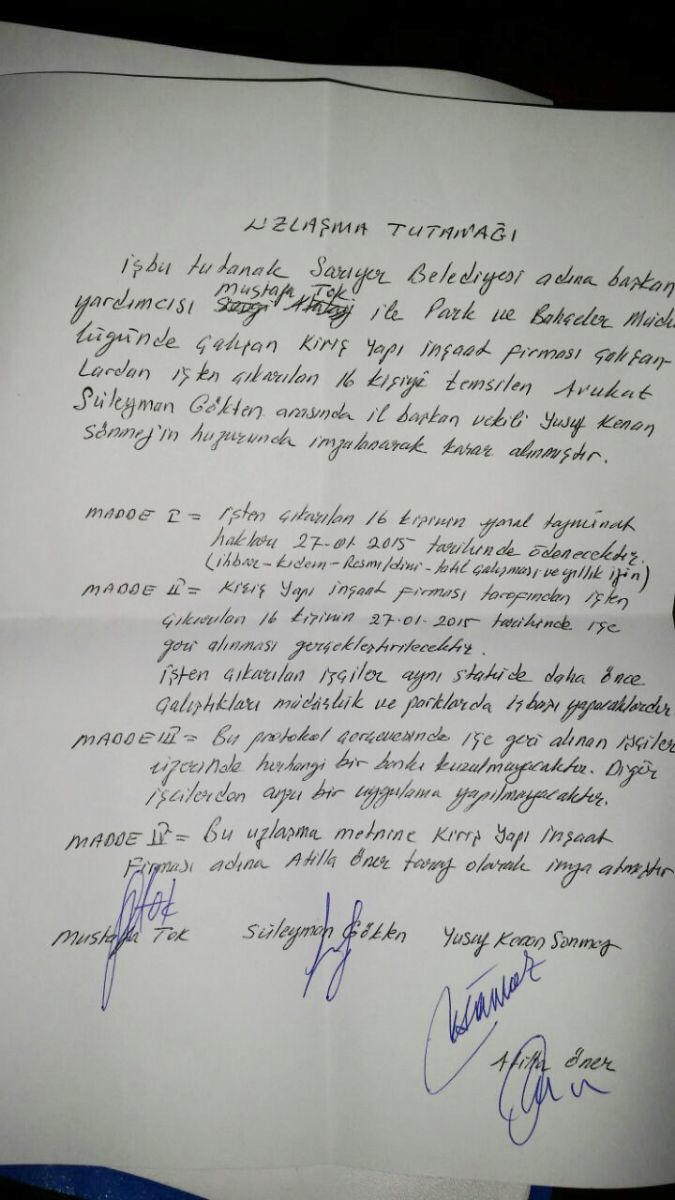 UZLAŞMA TUTANAĞI
işbu tutanak Sarıyer Belediyesi adına başkan
Mustafa Tok
yardımcısı ile Park ve Bahçeler Müdü
lüğünde çalışan Kiriş Yapı inşaat firması çalışan-
lardan işten çıkarılan 16 kişiyi temsilen Avukat
Süleyman Gökten arasında il başkan vekili Yusuf Kenan
Sönmez'in huzurunda imzalanarak karar alınmıştır.
MADDE I = işten çıkarılan 16 kişinin yasal tazminat
hakları 27-01 2015 tarihinde ödenecektir.
(ihbar-kıdem-Resmi/dini-tatil çalışması ve yıllık izin)
MADDE II = Kiriş Yapı inşaat firması tarafından işten
çıkarılan 16 kişinin 27-01-2015 tarihinde işe
geri alınması gerçekleştirilecektir.
işten çıkarılan işçiler aynı statüde daha önce
çalıştıkları müdürlük ve parklarda işbaşı yapacaklardır
MADDE III = Bu protokol çerçevesinde işe geri alınan işçiler
üzerinde herhangi bir baskı kurulmayacaktır. Diğer
işcilerden ayrı bir uygulama yapılmayacaktır.
MADDE IV = Bu uzlaşma metnine Kiriş Yapı inşaat
Firması adına Atilla Öner taraf olarak imza atmıştır
Mustafa Tok Süleyman Gökten Yusuf Kenan Sönmez
Atilla Öner